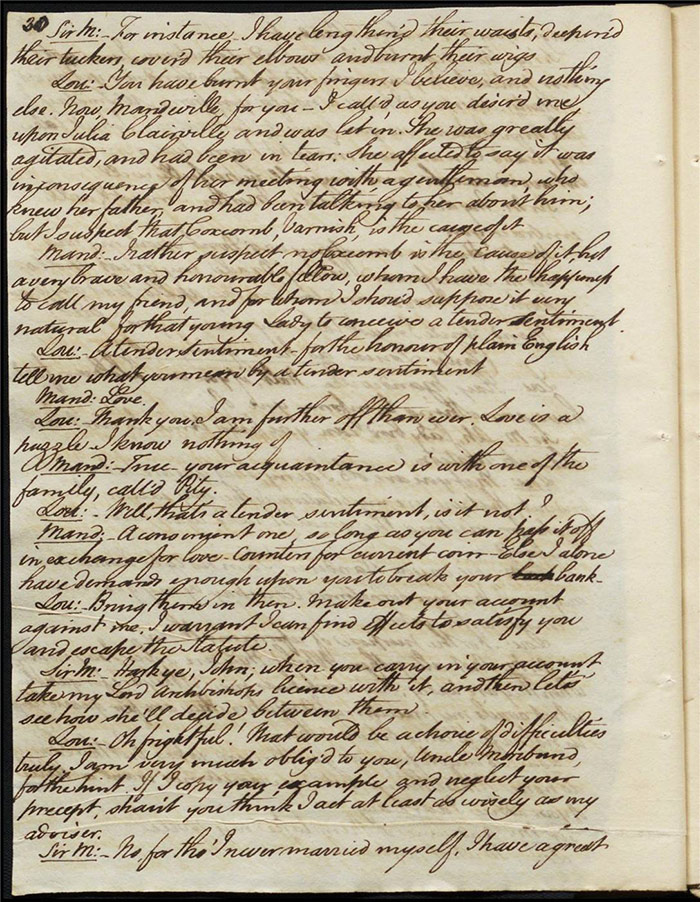 30 Sir M:- For instance I have lengthen'd their waists, deepen'd
their tuckers, cover'd their elbows and burnt their wigs
Lou:- You have burnt your fingers I believe, and nothing
else. Now Mandville, for you - I call'd as you desir'd me,
upon Julia Clairville and was let in. She was greatly
agitated, and had been in tears. She affected to say it was
in consequence of her meeting with a gentleman, who
knew her father, and had been talking to her about him;
but I suspect that Coxcomb, Varnish, is the cause of it
Mand:- I rather suspect no Coxcomb is the cause of it, but
a very brave and honourable fellow, whom I have the happiness
to call my friend, and for whom I shou'd suppose it very
natural for that young Lady to conceive a tender sentiment.
Lou:- A tender sentiment - for the honour of plain English
tell me what you mean by a tender sentiment
Mand: Love.
Lou:- Thank you. I am further off than ever. Love is a
puzzle I know nothing of
Mand:- True - your acquaintance is with one of the
family, call'd Pity.
Lou:- Well, that's a tender sentiment, is it not?
Mand:- A convenient one, so long as you can pass it off
in exchange for love - Counters for current coin - Else I alone
have demands enough upon you to break your bank -
Lou:- Bring them in then. Make out your account
against me. I warrant I can find effects to satisfy you
and escape the Statute.
Sir M:- Hark ye, John; when you carry in your account
take my Lord Archbishops licence with it, and then let's
see how she'll decide between them.
Lou:- Oh frightful! That would be a choice of difficulties
truly. I am very much oblig'd to you, Uncle
for the hint. If I copy your example and neglect your
precept, shan't you think I act at least as wisely as my
adviser.
Sir M:- No, for tho' I never married myself, I have a great